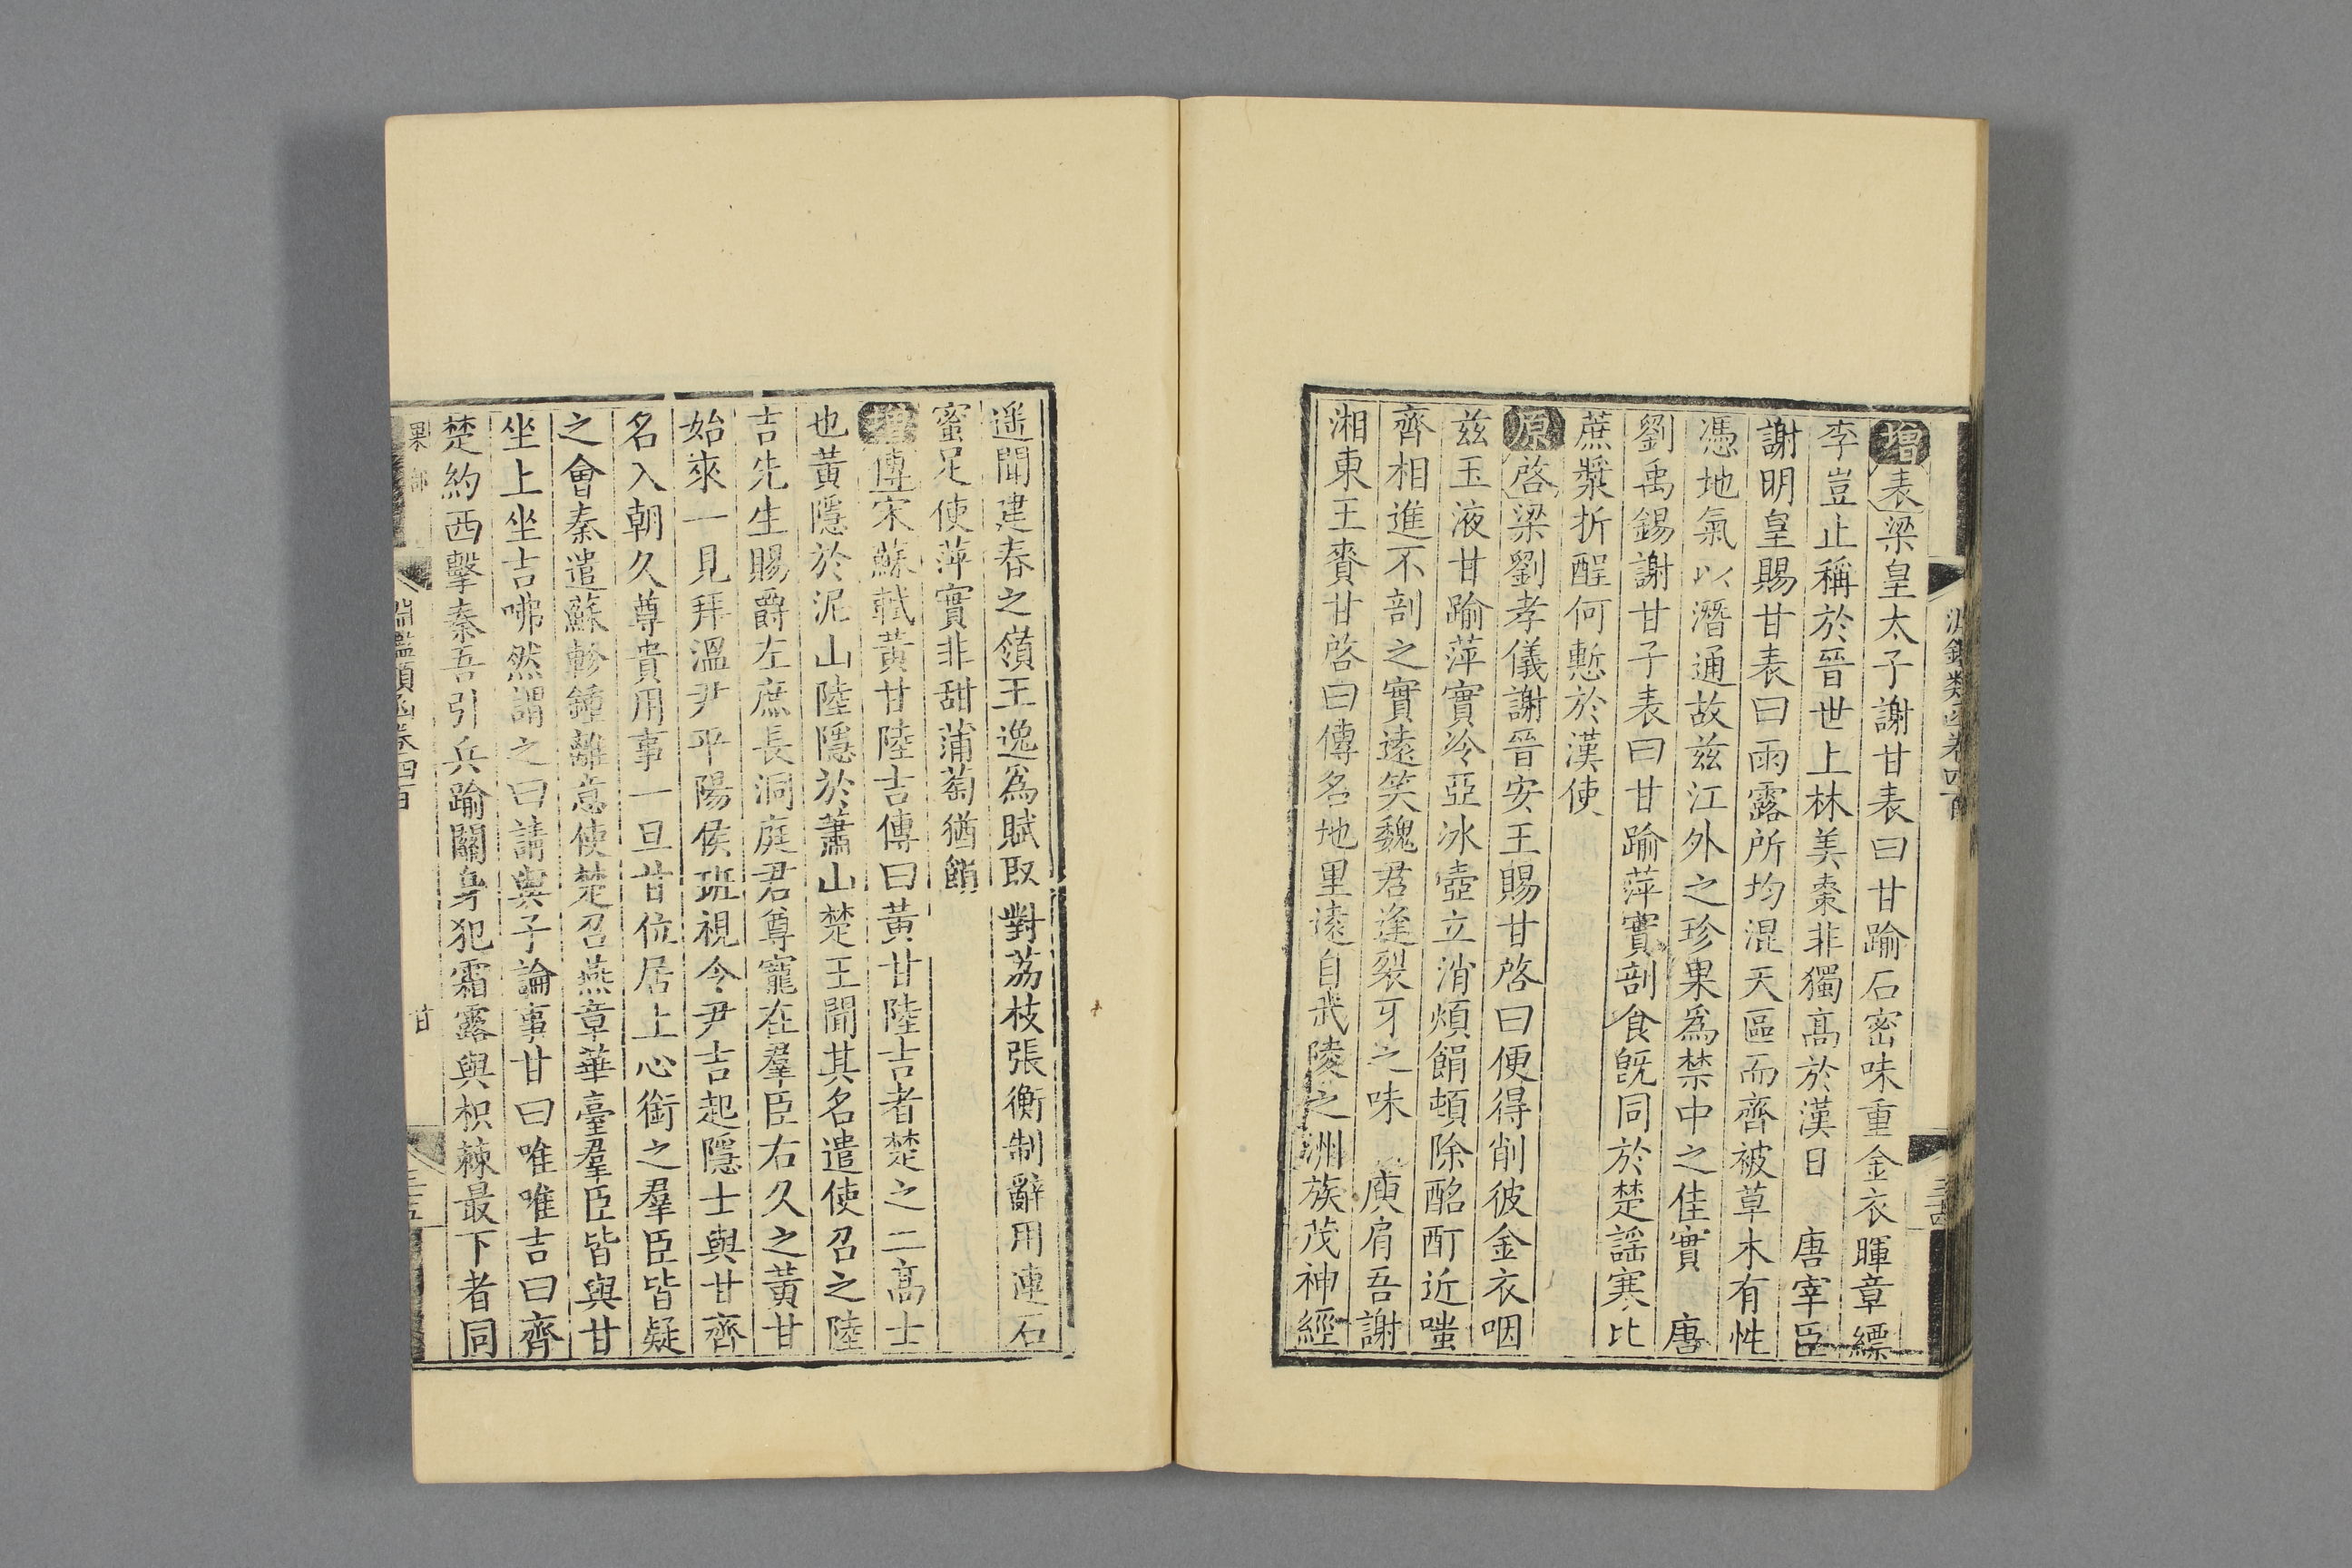 增表梁皇太子謝甘表曰甘踰石密味重金衣暉章縹
李豈止稱於晉世上林美棗非獨高於漢日　唐宰臣
謝明皇賜甘表曰雨露所均混天區而齊被草木有性
憑地氣以潛通故茲江外之珍果爲禁中之佳實　唐
劉禹錫謝甘子表曰甘踰萍實剖食旣同於楚謡寒比
蔗漿折酲何慙於漢使
原啓梁劉孝儀謝晉安王賜甘啓曰便得削彼金衣咽
茲玉液甘踰萍實冷亞冰壺立消煩餶頓除酩酊近嗤
齊相進不剖之實遠笑魏君逢裂牙之味　庾肩吾謝
湘東王賚甘啓曰傳名地里遠自武陵之洲族茂神經
遥聞建春之嶺王逸爲賦取對荔枝張衡制辭用連石
蜜足使萍實非甜蒲萄猶餶
增傳宋蘇軾黃甘陸吉傳曰黃甘陸吉者楚之二高士
也黃隱於泥山陸隱於蕭山楚王聞其名遣使召之陸
吉先生賜爵左庶長洞庭君尊寵在羣臣右久之黃甘
始來一見拜溫尹平陽侯班視令尹吉起隱士與甘齊
名入朝久尊貴用事一旦甘位居上心銜之羣臣皆疑
之會秦遣蘇軫鍾離意使楚召燕章華臺羣臣皆與甘
坐上坐吉咈然謂之曰請與子論事甘曰唯唯吉曰齊
楚約西擊秦吾引兵踰關身犯霜露與枳棘最下者同
果部
淵鑑類函卷四百
甘
三五